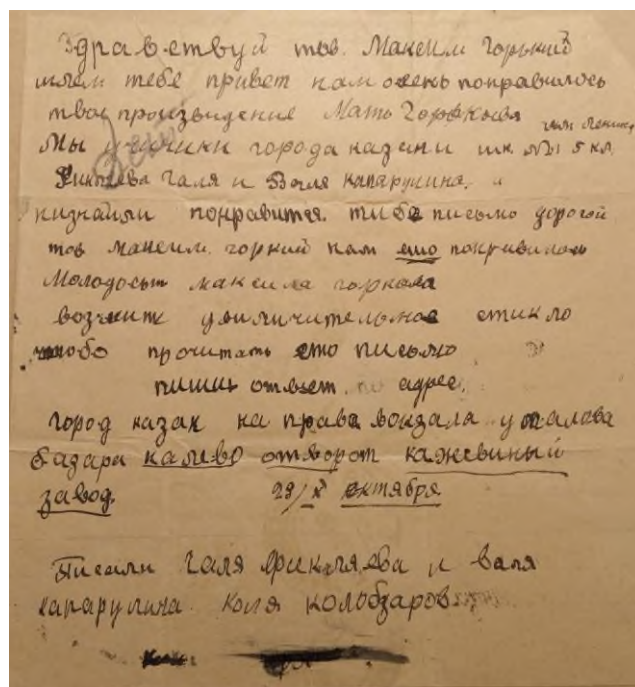 Здравствуй тов. Максим Горький
шлем тебе привет нам очень понравилось
твое произведение Мать Горькова
им Ленина
Мы ученики города казани шк. №1 5 кл.
Галя и Валя капарулина.
низнайим понравится тибе письмо дорогой
тов Максим. горкий нам ешо понравилось
Молодость максима горкова
возмите увиличительное стикло
чтобо прочитать ето письмо
пиши ответ по адрес.
город казан на права вокзала у
базара налево отворот кажевиный
завод. 29/X октября
Писали Галя и валя
капарулина коля колобзаров